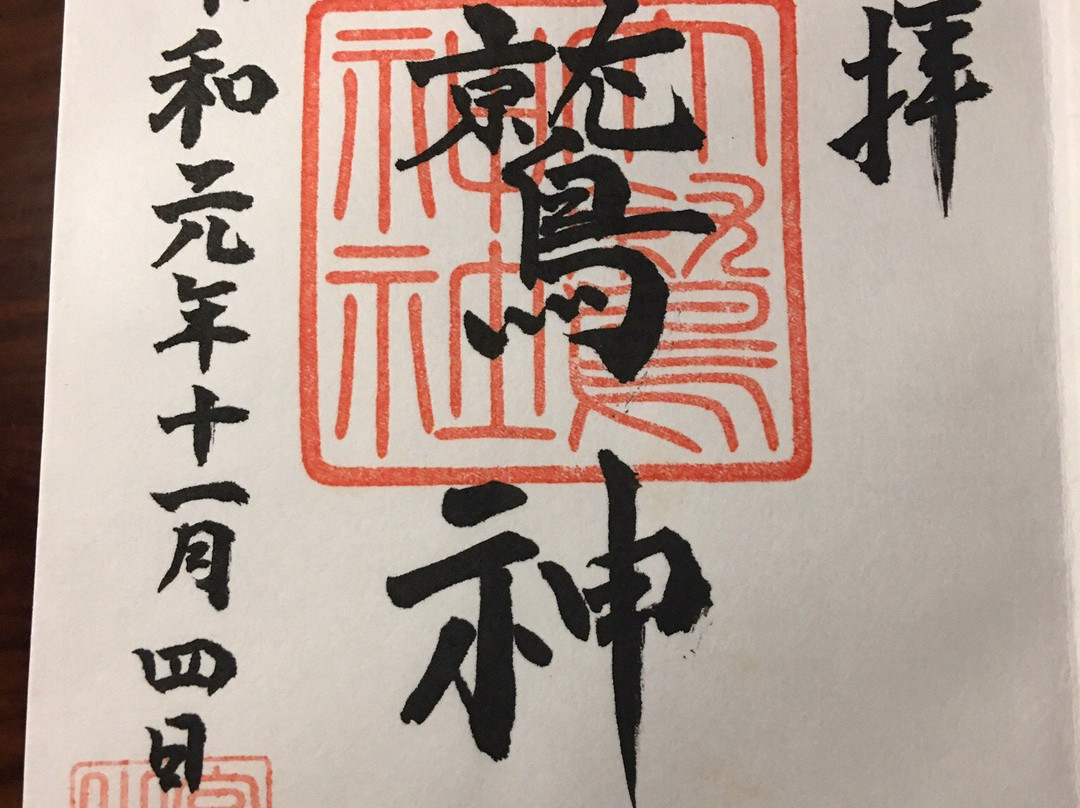 拝
鷲神
神社
和元年十一月四日